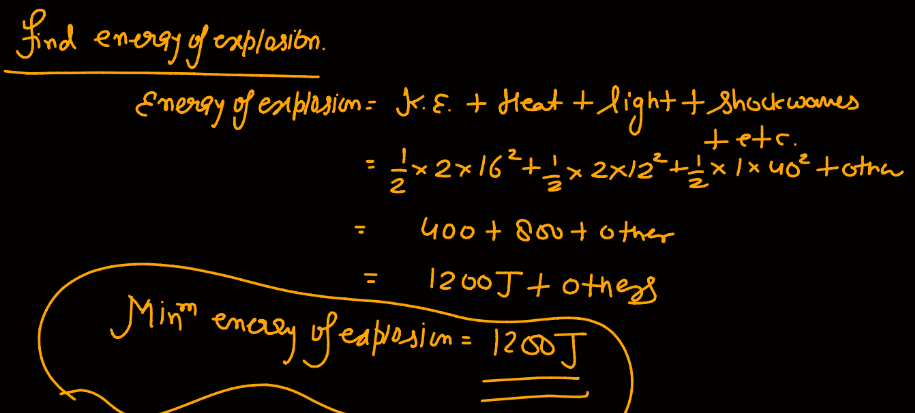 find energy of explosion.
Energy of explosion = K.E. + Heat + light + Shockwaves
+ etc.
= 1/2 × 2 × 16² + 1/2 × 2 × 12² + 1/2 × 1 × 40² + other
= 400 + 800 + other
= 1200J + others
Minᵐ energy of explosion = 1200J